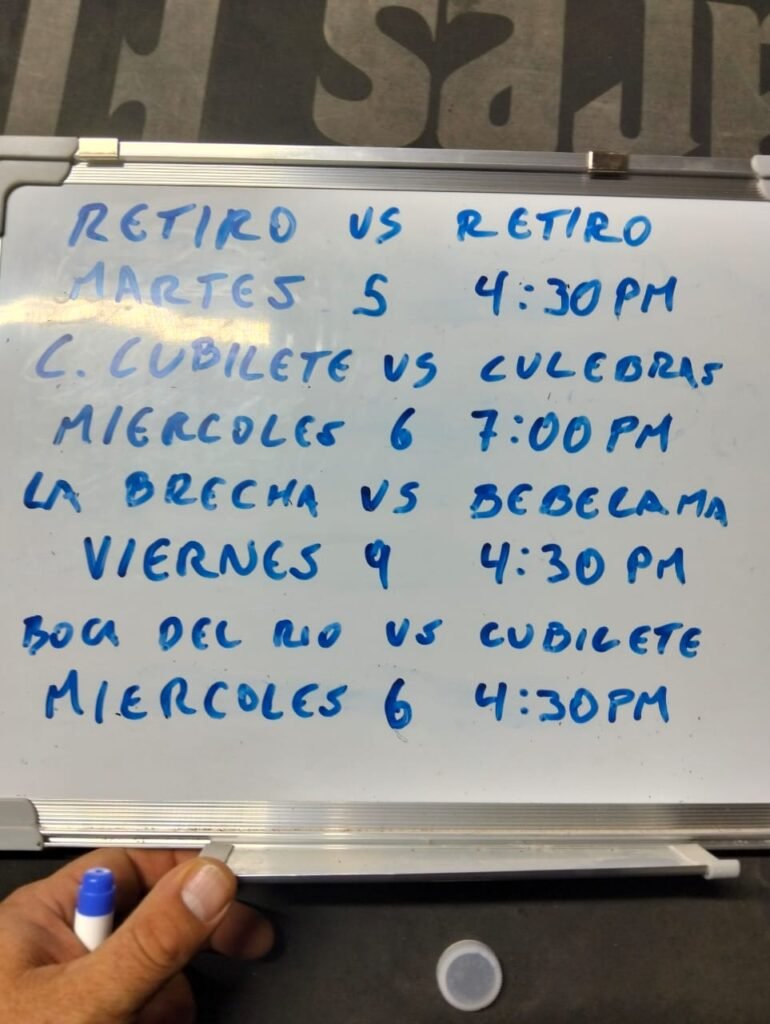 RETIRO VS RETIRO
MARTES 5 4:30PM
C. CUBILETE VS CULEBRAS
MIERCOLES 6 7:00PM
LA BRECHA VS BEBELAMA
VIERNES 9 4:30 PM
BOCA DEL RIO VS CUBILETE
MIERCOLES 6 4:30PM